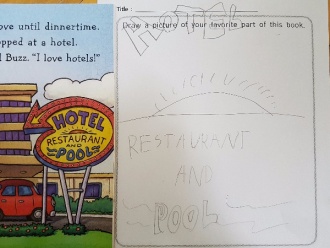 ove until dinnertime.
opped at a hotel.
Buzz. "I love hotels!"
HOTEL
RESTAURANT
AND
POOL
Title :
HOTEL
Draw a picture of your favorite part of this book.
RESTAURANT
AND
POOL